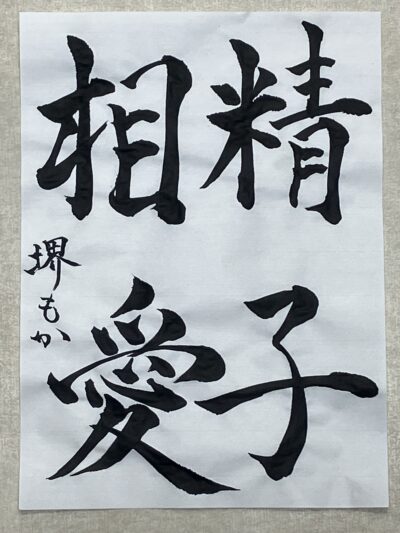 精子
相愛
堺もか